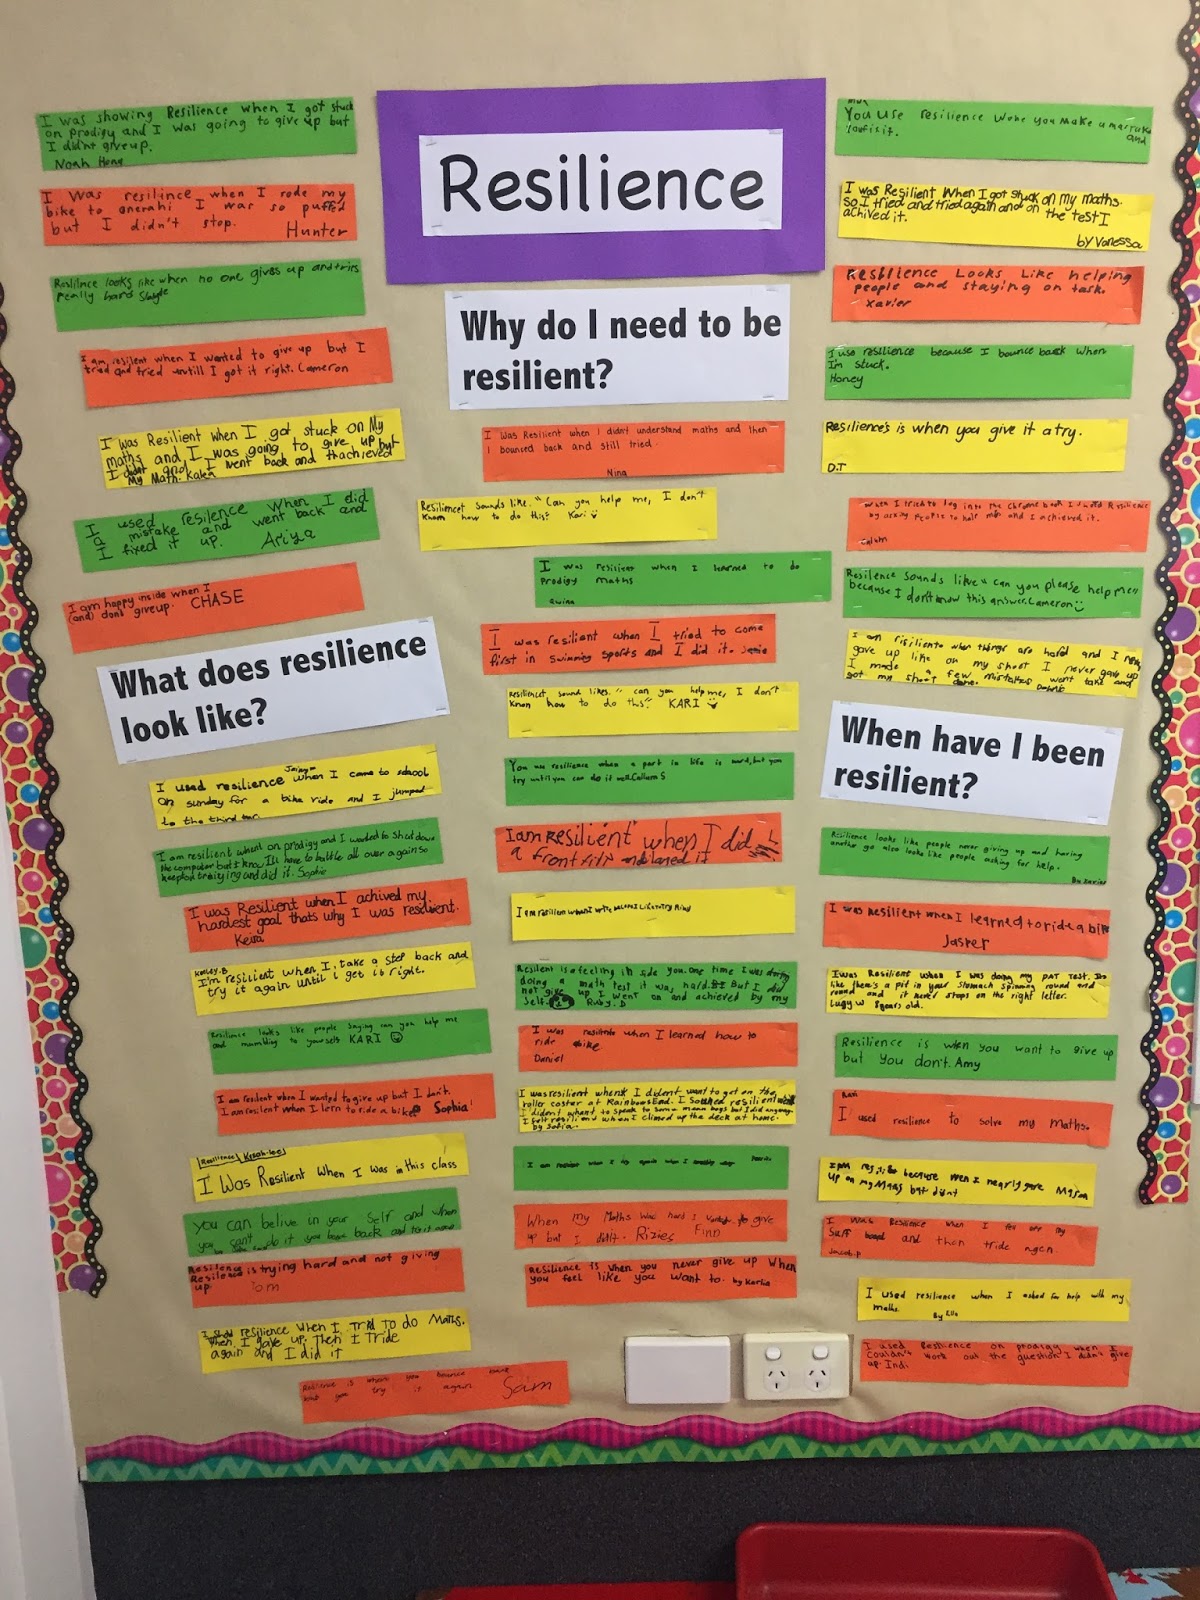 Resilience
I was showing Resilience when I got stuck
on prodigy and I was going to give up but
I didnt giveup.
Noah Heng
I was resilince when I rode my
bike to onerahi I was so puffed
but I didn't stop. Hunter
looks like when no one gives up and tries
really hard
I am resilient when I wanted to give up but I
tried and tried untill I got it right. Cameron
I was Resilient when I got stuck on My
maths and I was going to give up but
I didnt and I went back and
My Math. Kalea
I used resilence when I did
a mistake and went back and
I fixed it up. Ariya
I am happy inside when I
(and) dont giveup. CHASE
What does resilience
look like?
I used resilience when I came to school
on sunday for a bike ride and I jumped
to the third
I am resilient on prodigy and I wanted to shut down
the computer but I know I'll have to battle all over again so
keept on and did it. Sophie
I was Resilient when I achived my
hardest goal thats why I was
Keira
I'm resilient when I take a step back and
try it again until i get it right.
Resilience looks like people saying can you help me
and mumbling to yourself KARI
I am resilent when I wanted to give up but I don't.
I am resilent when I lern to ride a bike Sophia!
Resilience
I Was Resilient When I Was in this class
you can belive in your self and when
you can't do it you bounce back and
Resilence
Resilence is trying hard and not giving
up
resilience when I TO DO Maths.
when I gave up. Then I tride
again and I did it
Resilience is when you bounce back
and you try it again Sam
Why do I need to be
resilient?
I was Resilient when I didn't understand maths and then
I bounced back and still tried.
Nina
Resiliencet sounds like. "Can you help me, I don't
know how to do this? Kari
I was resilient when I learned to do
prodigy maths
I was resilient when I tried to come
first in swimming sports and I did it.
resiliencet sound likes." can you help me, I don't
know how to do this? KARI
You use resilience when a part in life is hard, but you
try until you can do it well. Callum S
I am Resilient when I did
a front and it
Resilent is a feeling in side you. one time I was
doing a math test it was hard. But I did
not give up I went on and achieved by my
self. Ruby. D
I was when I learned how to
ride bike
Daniel
I was resilient when I dident want to get on the
roller coster at RainbowsEnd. I
I dident whant to speak to some mean boys but I did anyway.
I felt resilient when I climed up the deck at home.
by Sofia.
I am when I try again when I
When my Maths was hard I wanted to give
up but I didn't. Finn
Resilience is when you never give up when
you feel like you want to. by
You use resilience you make a
and
I was Resilient When I got stuck on my maths.
so I tried and tried again and on the test I
achived it.
by Vanessa
Resilience Looks Like helping
people and staying on task.
Xavier
I use resilience because I bounce back when
I'm stuck.
Honey
Resilience's is when you give it a try.
D.T
When I tried to log into the chrome book I used Resilience
by asking people to help me and I achieved it.
Calum
Resilence sounds like " can you please help me
because I don't know this answer. Cameron
I am when things are hard and I
gave up like on my shoot I never gave up
I made few mistakes went and
got my shoot done.
When have I been
resilient?
Resilience looks like people never giving up and having
another go also looks like people asking for help.
By Xavier
I was Resilient when I learned to ride a bike
Jasper
I was Resilient when I was doing my PAT test.
like there's a pit in your stomach spinning round and
round and it never stops on the right letter.
Lucy W 8years old.
Resilience is when you want to give up
but you don't. Amy
I used resilience to solve my maths.
I am because wen I nearly gave Mason
up on my Maths but didnt
I was Resilience when I fell off my
surf board and then tride agen.
Jacob.p
I used resilience when I asked for help with my
maths. By Ella
I used Resilience on prodigy when I
couldn't work out the question I didn't give
up. Indi